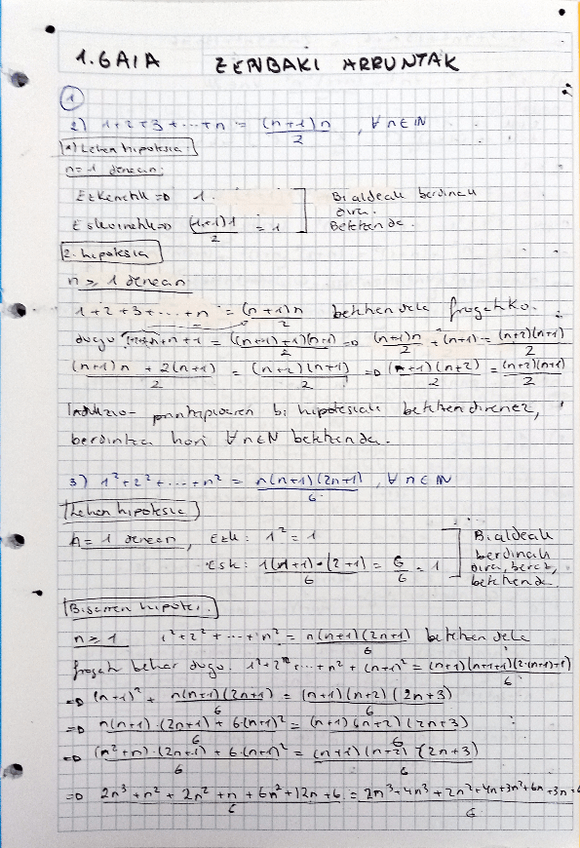 1. GAIA ZENBAKI ARRUNTAK
1
2) 1+2+3+...+n = (n+1)n/2 , ∀n∈ℕ
Lehen hipotesia
n=1 denean:
Ezkerretik ⇒ 1.
Eskuinetik ⇒ (1+1)1/2 = 1
Bi aldeak berdinak
dira.
Betetzen da.
2. hipotesia
n ≥ 1 denean
1+2+3+...+n = (n+1)n/2 betetzen dela frogatuko
dugu n+1 = ((n+1)+1)(n+1)/2 ⇒ (n+1)n/2 + (n+1) = (n+2)(n+1)/2
(n+1)n + 2(n+1)/2 = (n+2)(n+1)/2 ⇒ (n+1)(n+2)/2 = (n+2)(n+1)/2
Indukzio-printzipioaren bi hipotesiak betetzen direnez,
berdintza hori ∀n∈ℕ betetzen da.
3) 1²+2²+...+n² = n(n+1)(2n+1)/6 , ∀n∈ℕ
Lehen hipotesia
n=1 denean, Ezk: 1² = 1
Esk: 1(1+1)·(2+1)/6 = 6/6 = 1
Bi aldeak
berdinak
dira, beraz,
betetzen da.
Bigarren hipotesi.
n ≥ 1 1²+2²+...+n² = n(n+1)(2n+1)/6 betetzen dela
frogatu behar dugu. 1²+2²+...+n²+(n+1)² = (n+1)(n+1+1)(2·(n+1)+1)/6
⇒ (n+1)² + n(n+1)(2n+1)/6 = (n+1)(n+2)(2n+3)/6
⇒ n(n+1)·(2n+1) + 6·(n+1)²/6 = (n+1)(n+2)(2n+3)/6
⇒ (n²+n)·(2n+1) + 6·(n+1)²/6 = (n+1)(n+2)·(2n+3)/6
⇒ 2n³+n²+2n²+n+6n²+12n+6/6 = 2n³+4n²+2n²+4n+3n²+6n+3n+6/6